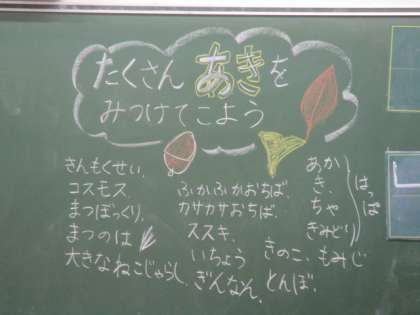 たくさん あきを
みつけてこよう
きんもくせい.
コスモス.
まつぼっくり.
まつのは
大きなねこじゃらし.
ふかふかおちば.
カサカサおちば.
ススキ.
いちょう
ぎんなん.
あか
き.
ちゃ
きみどり
はっぱ
きのこ. もみじ
とんぼ.